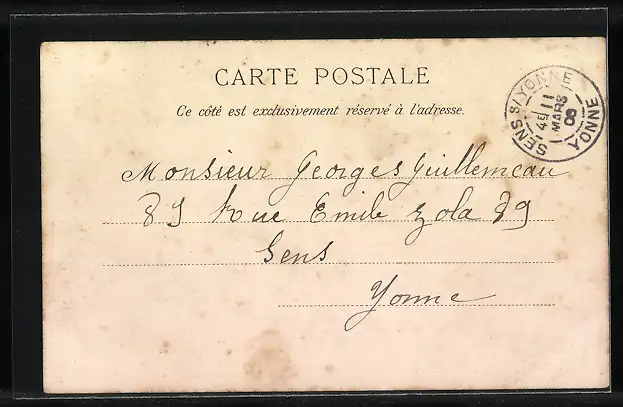 CARTE POSTALE
Ce côté est exclusivement réservé à l'adresse.
SENS S/YONNE
4E 11
MARS
08
YONNE
Monsieur Georges Guillemeau
89 Rue Emile Zola 89
Sens
Yonne